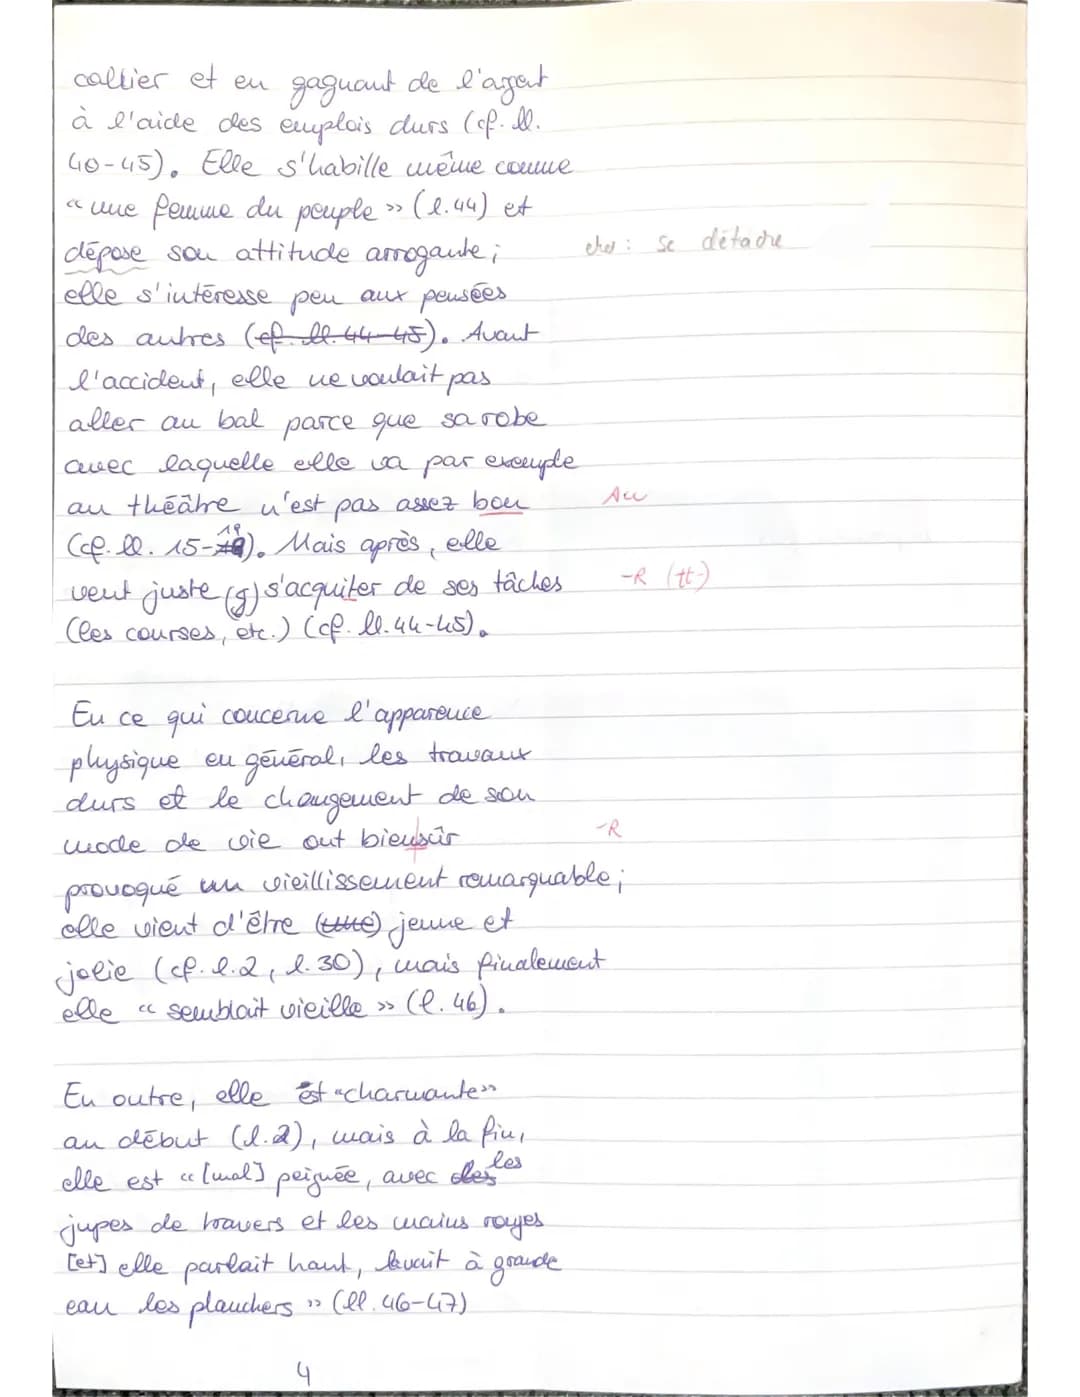 collier et en gagnant de l'argent
à l'aide des emplois durs (cf. ll.
40-45). Elle s'habille même comme
« une femme du peuple » (l.44) et
dépose son attitude arrogante; eher: se détache
elle s'intéresse peu aux pensées
des autres (cf. ll. 44-45). Avant
l'accident, elle ne voulait pas
aller au bal parce que sa robe
avec laquelle elle va par exemple
au théâtre n'est pas assez bon
(cf. ll. 15-19). Mais après, elle
veut juste (g) s'acquiter de ses tâches -R (tt-)
(les courses, etc.) (cf. ll. 44-45).
En ce qui concerne l'apparence
physique en général, les travaux
durs et le changement de son
mode de vie ont biensûr -R
provoqué un vieillissement remarquable;
elle vient d'être jeune et
jolie (cf. l.2, l.30), mais finalement
elle « semblait vieille » (l. 46).
En outre, elle est «charmante»
au début (l.2), mais à la fin,
elle est « [mal] peignée, avec les
jupes de travers et les mains rouges
[et] elle parlait haut, lavait à grande
eau les planchers » (ll. 46-47)
4